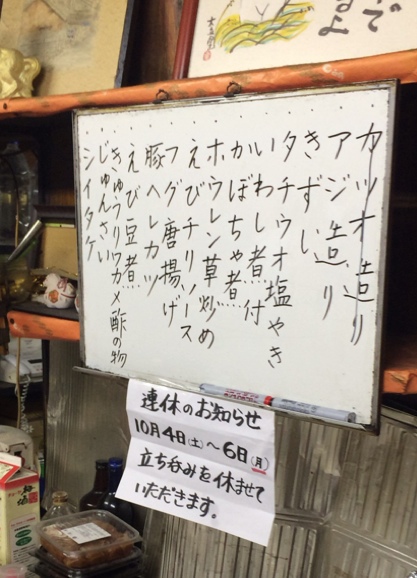 カツオ造り
アジ造り
きずし
タチウオ塩やき
いわし煮付
かぼちゃ煮
ホウレン草炒め
えびチリソース
フグ唐揚げ
豚ヘレカツ
えび豆煮
きゅうりワカメ酢の物
じゅんさい
シイタケ
連休のお知らせ
10月4日(土)〜6日(月)
立ち呑みを休ませて
いただきます。